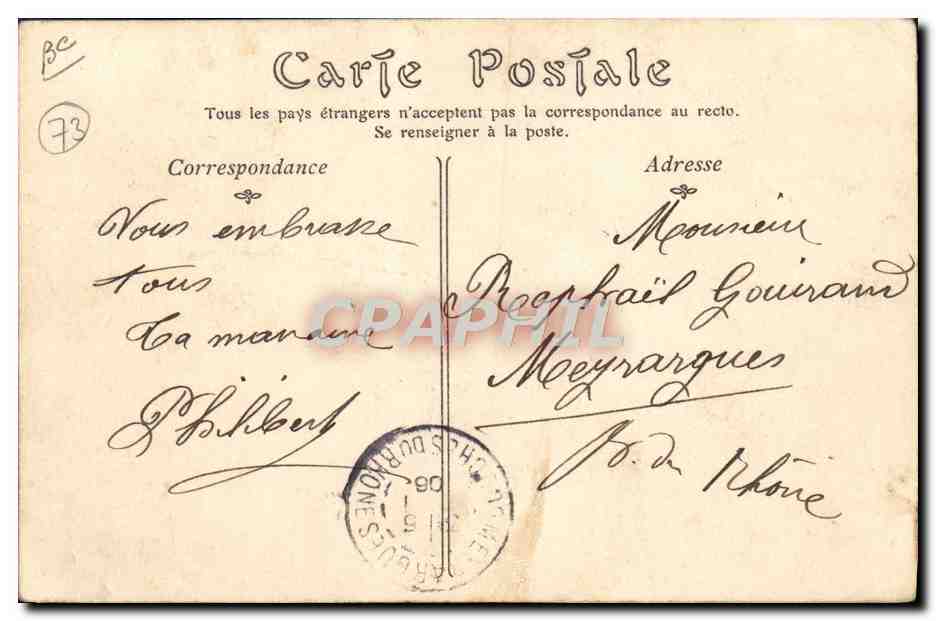 BC
73
Carte Postale
Tous les pays étrangers n'acceptent pas la correspondance au recto.
Se renseigner à la poste.
Correspondance
Vous embrasse
tous
ta marraine
Philibert
Adresse
Monsieur
Raphaël Gouirand
Meyrargues
B. du Rhône
CPAPHIL
CH-S DU RHONE
06